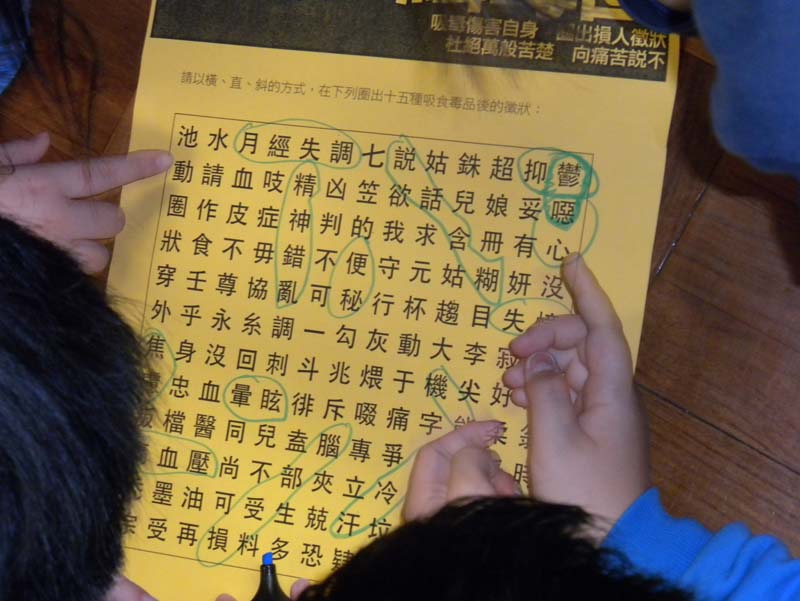 吸毒傷害自身 出損人徵狀
杜絕萬般苦楚 向痛苦說不
請以橫、直、斜的方式，在下列圈出十五種吸食毒品後的徵狀：
池水月經失調七說姑銖超抑鬱
動請血吱精凶笠欲話兒娘妥噁
圈作皮症神判的我求含冊有心
狀食不毋錯不便守元姑糊妍沒
穿壬尊協亂可秘行杯趨目失
外乎永糸調一勾灰動大李寂
焦身沒回刺斗兆煨于機尖好
忠血暈眩徘斥啜痛字能柔
檔醫同兒盍腦專爭時
血壓尚不部夾立冷
墨油可受生兢汗垃
受再損料多恐